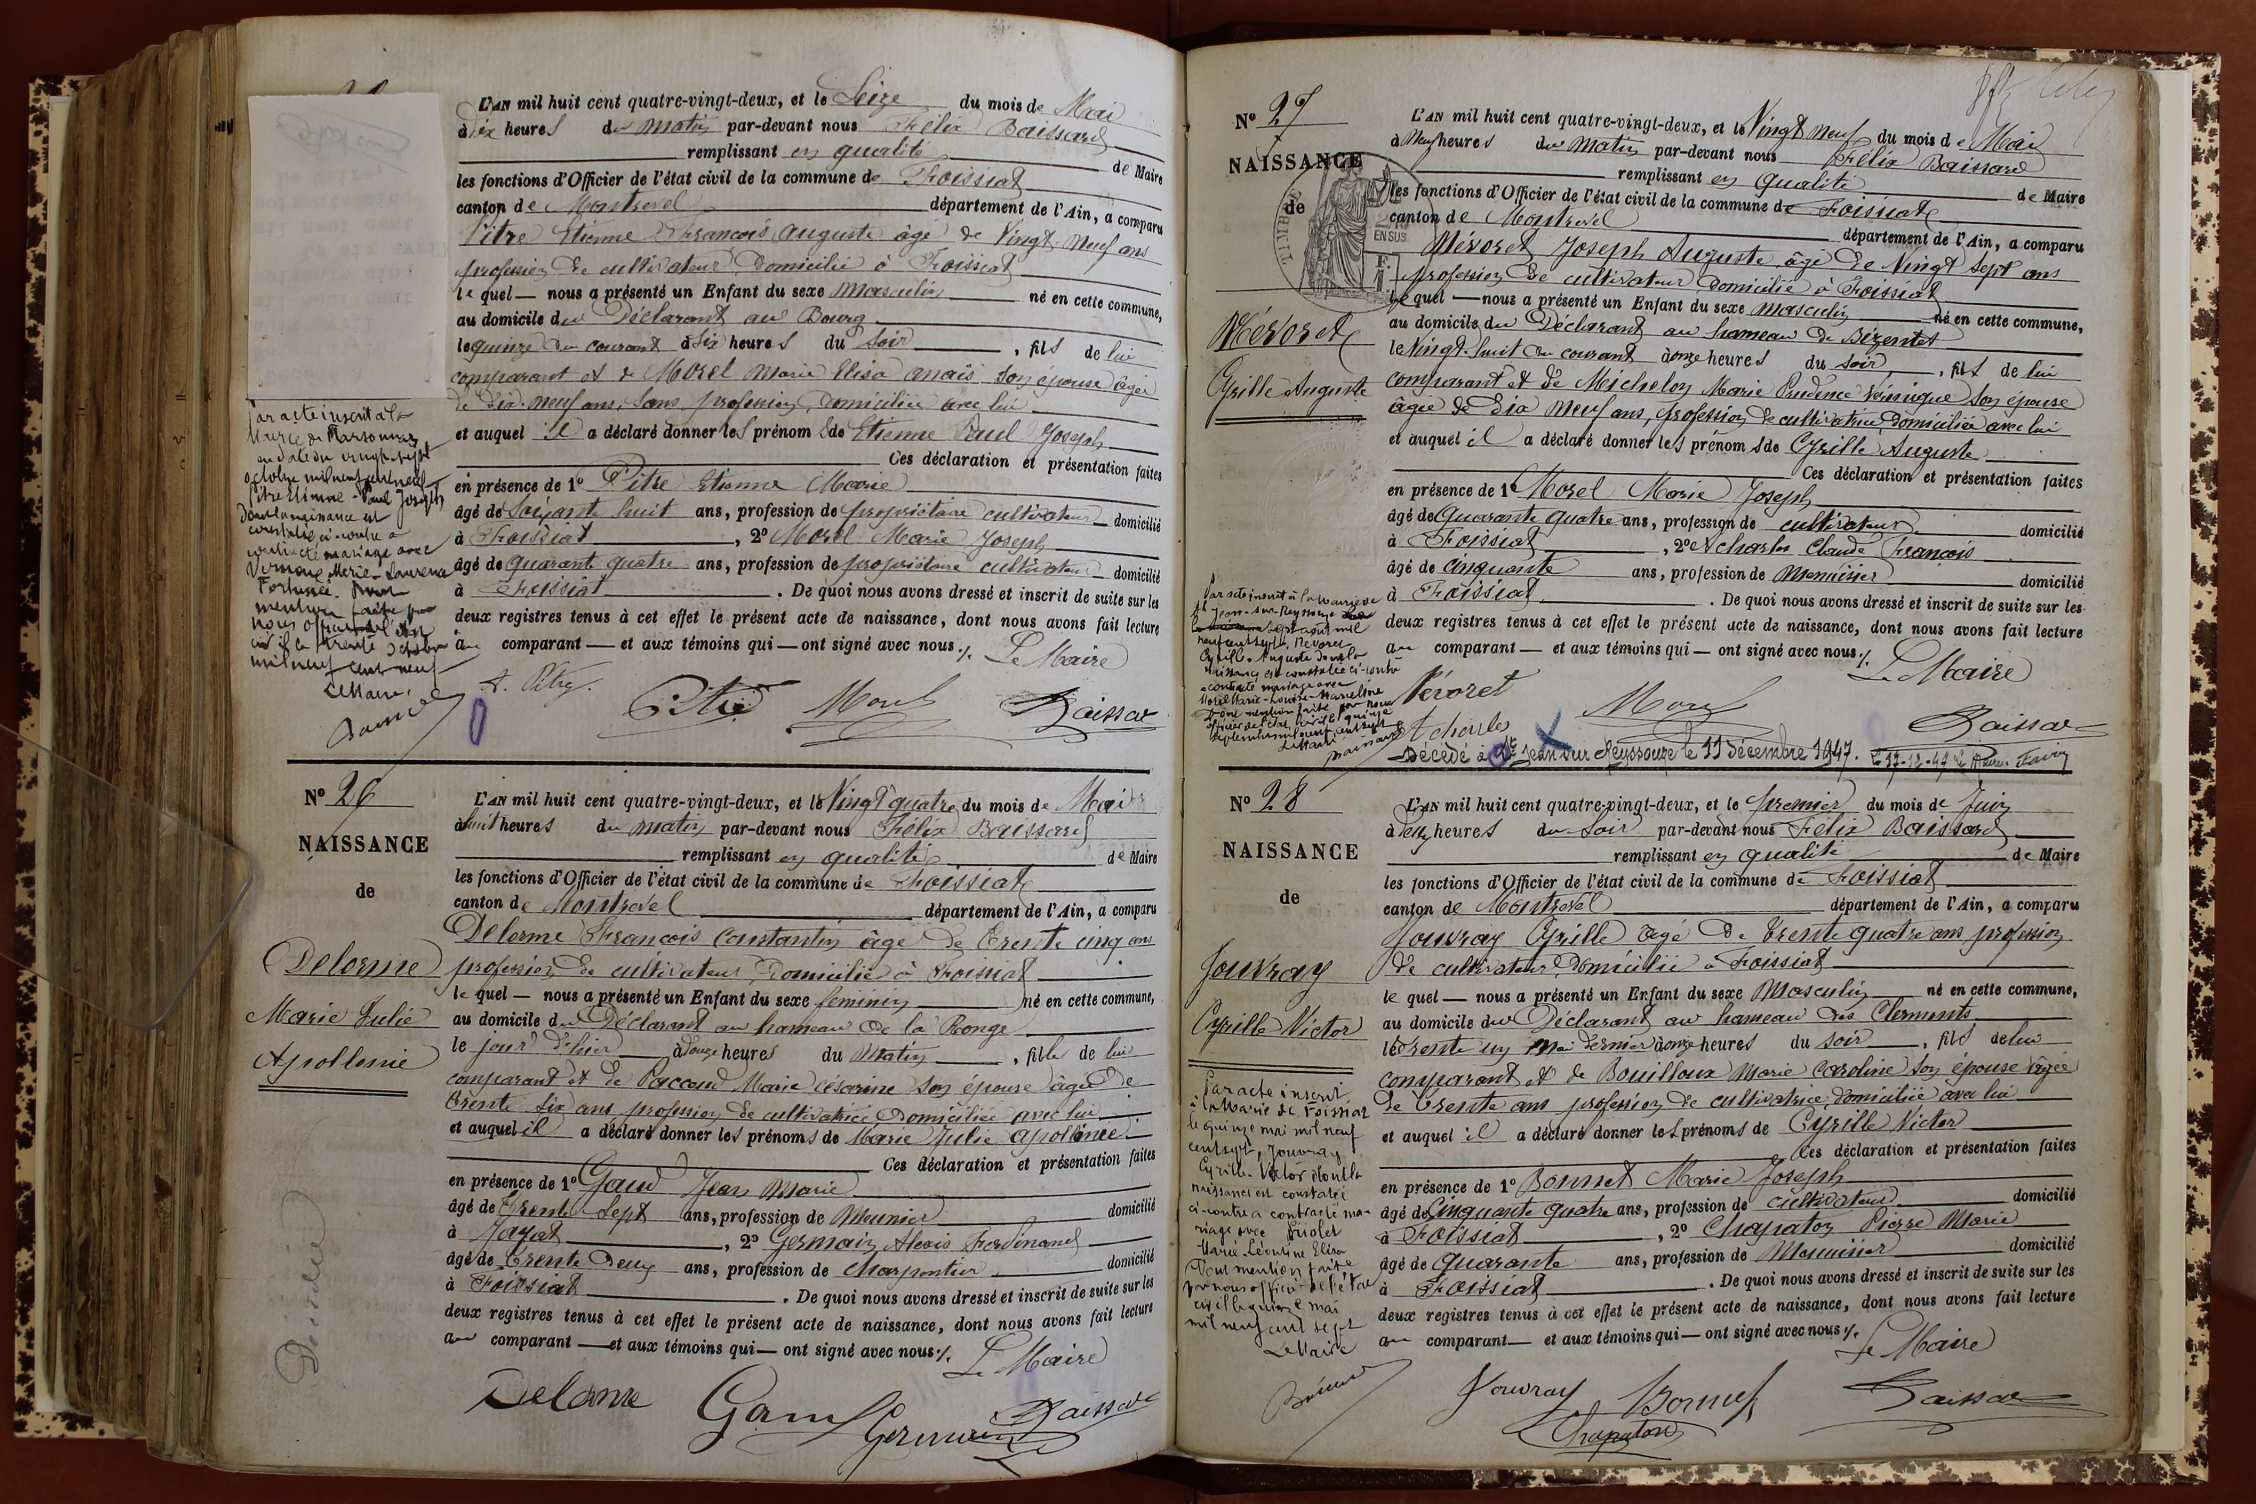 L'AN mil huit cent quatre-vingt-deux, et le Seize du mois de Mai
à dix heures du matin par-devant nous Félix Baissard
remplissant en qualité de Maire
les fonctions d'Officier de l'état civil de la commune de Foissiat
canton de Montrevel département de l'Ain, a comparu
Pitre Etienne François Auguste âgé de Vingt Neuf ans
profession de cultivateur domicilié à Foissiat
le quel — nous a présenté un Enfant du sexe masculin né en cette commune,
au domicile du Déclarant au Bourg
le quinze du courant à Six heures du Soir, fils de lui
comparant et de Morel Marie Elisa Anaïs Son épouse âgée
de dix neuf ans, Sans profession, domiciliée avec lui
et auquel il a déclaré donner les prénoms de Etienne Paul Joseph
Ces déclaration et présentation faites
en présence de 1º Pitre Etienne Marie
âgé de Soixante huit ans, profession de propriétaire cultivateur domicilié
à Foissiat, 2º Morel Marie Joseph
âgé de quarante quatre ans, profession de propriétaire cultivateur domicilié
à Foissiat. De quoi nous avons dressé et inscrit de suite sur les
deux registres tenus à cet effet le présent acte de naissance, dont nous avons fait lecture
au comparant — et aux témoins qui — ont signé avec nous ./.
Le Maire
Pitre Morel Baissard
Par acte inscrit à la
Mairie de Marsonnas
en date du vingt-sept
octobre mil neuf cent neuf
Pitre Etienne-Paul Joseph
dont la naissance est
constatée ci-contre a
contracté mariage avec
Marie-Laurence
mention faite par
nous officier de l'état
civil le trente octobre
mil neuf cent neuf
Le Maire,
Nº 26
NAISSANCE
de
Delorme
Marie Julie
Apollonie
Décédée
L'AN mil huit cent quatre-vingt-deux, et le Vingt quatre du mois de Mai
à huit heures du matin par-devant nous Félix Baissard
remplissant en qualité de Maire
les fonctions d'Officier de l'état civil de la commune de Foissiat
canton de Montrevel département de l'Ain, a comparu
Delorme François Constantin âgé de Trente cinq ans
profession de cultivateur domicilié à Foissiat
le quel — nous a présenté un Enfant du sexe féminin né en cette commune,
au domicile du Déclarant au hameau de la Ronge
le jour d'hier à onze heures du Matin, fille de lui
comparant et de Paccoud Marie Césarine Son épouse âgée de
trente six ans profession de cultivatrice domiciliée avec lui
et auquel il a déclaré donner les prénoms de Marie Julie Apollonie
Ces déclaration et présentation faites
en présence de 1º Gaud Jean Marie
âgé de Trente Sept ans, profession de Meunier domicilié
à Jayat, 2º Germain Alexis Ferdinand
âgé de Trente Deux ans, profession de charpentier domicilié
à Foissiat. De quoi nous avons dressé et inscrit de suite sur les
deux registres tenus à cet effet le présent acte de naissance, dont nous avons fait lecture
au comparant — et aux témoins qui — ont signé avec nous ./.
Le Maire
Delorme Gaud Germain Baissard
Nº 27
NAISSANCE
de
Névoret
Cyrille Auguste
L'AN mil huit cent quatre-vingt-deux, et le Vingt Neuf du mois de Mai
à Neuf heures du matin par-devant nous Félix Baissard
remplissant en qualité de Maire
les fonctions d'Officier de l'état civil de la commune de Foissiat
canton de Montrevel département de l'Ain, a comparu
Névoret Joseph Auguste âgé de Vingt Sept ans
profession de cultivateur domicilié à Foissiat
le quel — nous a présenté un Enfant du sexe masculin né en cette commune,
au domicile du Déclarant au hameau de Bézentet
le Vingt-huit du courant à onze heures du soir, fils de lui
comparant et de Michelon Marie Prudence Véronique Son épouse
âgée de Dix Neuf ans, profession de cultivatrice domiciliée avec lui
et auquel il a déclaré donner les prénoms de Cyrille Auguste
Ces déclaration et présentation faites
en présence de 1º Morel Marie Joseph
âgé de Quarante quatre ans, profession de cultivateur domicilié
à Foissiat, 2º Acharles Claude François
âgé de Cinquante ans, profession de Menuisier domicilié
à Foissiat. De quoi nous avons dressé et inscrit de suite sur les
deux registres tenus à cet effet le présent acte de naissance, dont nous avons fait lecture
au comparant — et aux témoins qui — ont signé avec nous ./.
Le Maire
Névoret Morel Baissard
Acharles
Par acte inscrit à la mairie de
St Jean-sur-Reyssouze
sept août mil
neuf cent sept, Névoret
Cyrille-Auguste dont la
naissance est constatée ci-contre
a contracté mariage avec
Morel Marie-Louise-Marceline
Dont mention faite par nous
officier de l'état civil le quinze
septembre mil neuf cent sept
Le Maire
Décédé à St Jean sur Reyssouze le 11 décembre 1947. Le 17-12-47 Le Maire
Nº 28
NAISSANCE
de
Jouvray
Cyrille Victor
L'AN mil huit cent quatre-vingt-deux, et le premier du mois de Juin
à deux heures du Soir par-devant nous Félix Baissard
remplissant en qualité de Maire
les fonctions d'Officier de l'état civil de la commune de Foissiat
canton de Montrevel département de l'Ain, a comparu
Jouvray Cyrille âgé de trente quatre ans profession
de cultivateur domicilié à Foissiat
le quel — nous a présenté un Enfant du sexe Masculin né en cette commune,
au domicile du Déclarant au hameau des Clermonts
le trente un Mai dernier à onze heures du soir, fils de lui
comparant et de Bouilloux Marie Caroline Son épouse âgée
de trente ans profession de cultivatrice, domiciliée avec lui
et auquel il a déclaré donner les prénoms de Cyrille Victor
Ces déclaration et présentation faites
en présence de 1º Bonnet Marie Joseph
âgé de Cinquante quatre ans, profession de cultivateur domicilié
à Foissiat, 2º Chapaton Pierre Marie
âgé de quarante ans, profession de Menuisier domicilié
à Foissiat. De quoi nous avons dressé et inscrit de suite sur les
deux registres tenus à cet effet le présent acte de naissance, dont nous avons fait lecture
au comparant — et aux témoins qui — ont signé avec nous ./.
Le Maire
Jouvray Bonnet Baissard
Chapaton
Par acte inscrit
à la Mairie de Foissiat
le quinze mai mil neuf
cent sept, Jouvray
Cyrille-Victor dont la
naissance est constatée
ci-contre a contracté ma-
riage avec Piolet
Marie-Léontine Elisa
Dont mention faite
par nous officier de l'état
civil le quinze mai
mil neuf cent sept
Le Maire